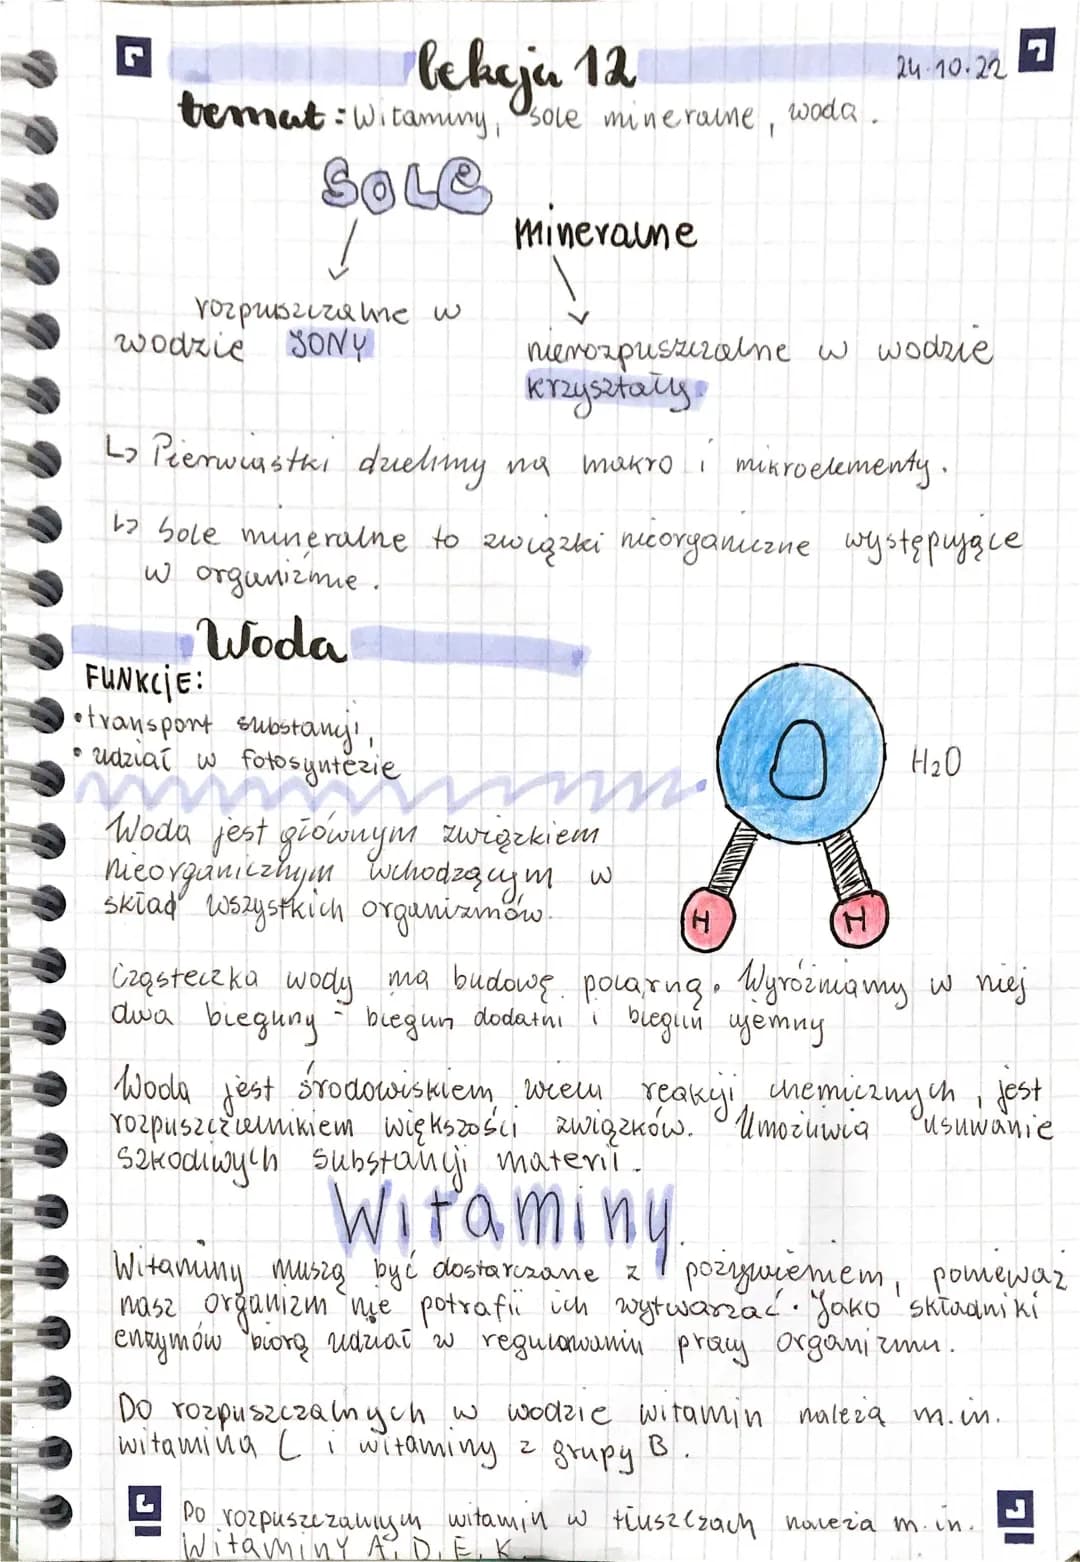 lekcja 12
24.10.22
temat: Witaminy, sole mineralne, woda.
SOLE
mineralne
rozpuszczalne w
wodzie JONY
nierozpuszczalne w wodzie
kryształy
↳ Pierwiastki dzielimy na makro i mikroelementy.
↳ Sole mineralne to związki nieorganiczne występujące
w organizmie.
Woda
FUNKCJE:
• transport substancji,
• udział w fotosyntezie
H2O
O
H H
Woda jest głównym związkiem
nieorganicznym wchodzącym w
skład wszystkich organizmów.
Cząsteczka wody ma budowę polarną. Wyróżniamy w niej
dwa bieguny - biegun dodatni i biegun ujemny
Woda jest środowiskiem wielu reakcji chemicznych, jest
rozpuszczalnikiem większości związków. Umożliwia usuwanie
szkodliwych substancji materii.
Witaminy
Witaminy muszą być dostarczane z pożywieniem, ponieważ
nasz organizm nie potrafi ich wytwarzać. Jako składniki
enzymów biorą udział w regulowaniu pracy organizmu.
Do rozpuszczalnych w wodzie witamin należą m.in.
witamina C i witaminy z grupy B.
Do rozpuszczalnych witamin w tłuszczach należą m.in.
Witaminy A, D, E, K